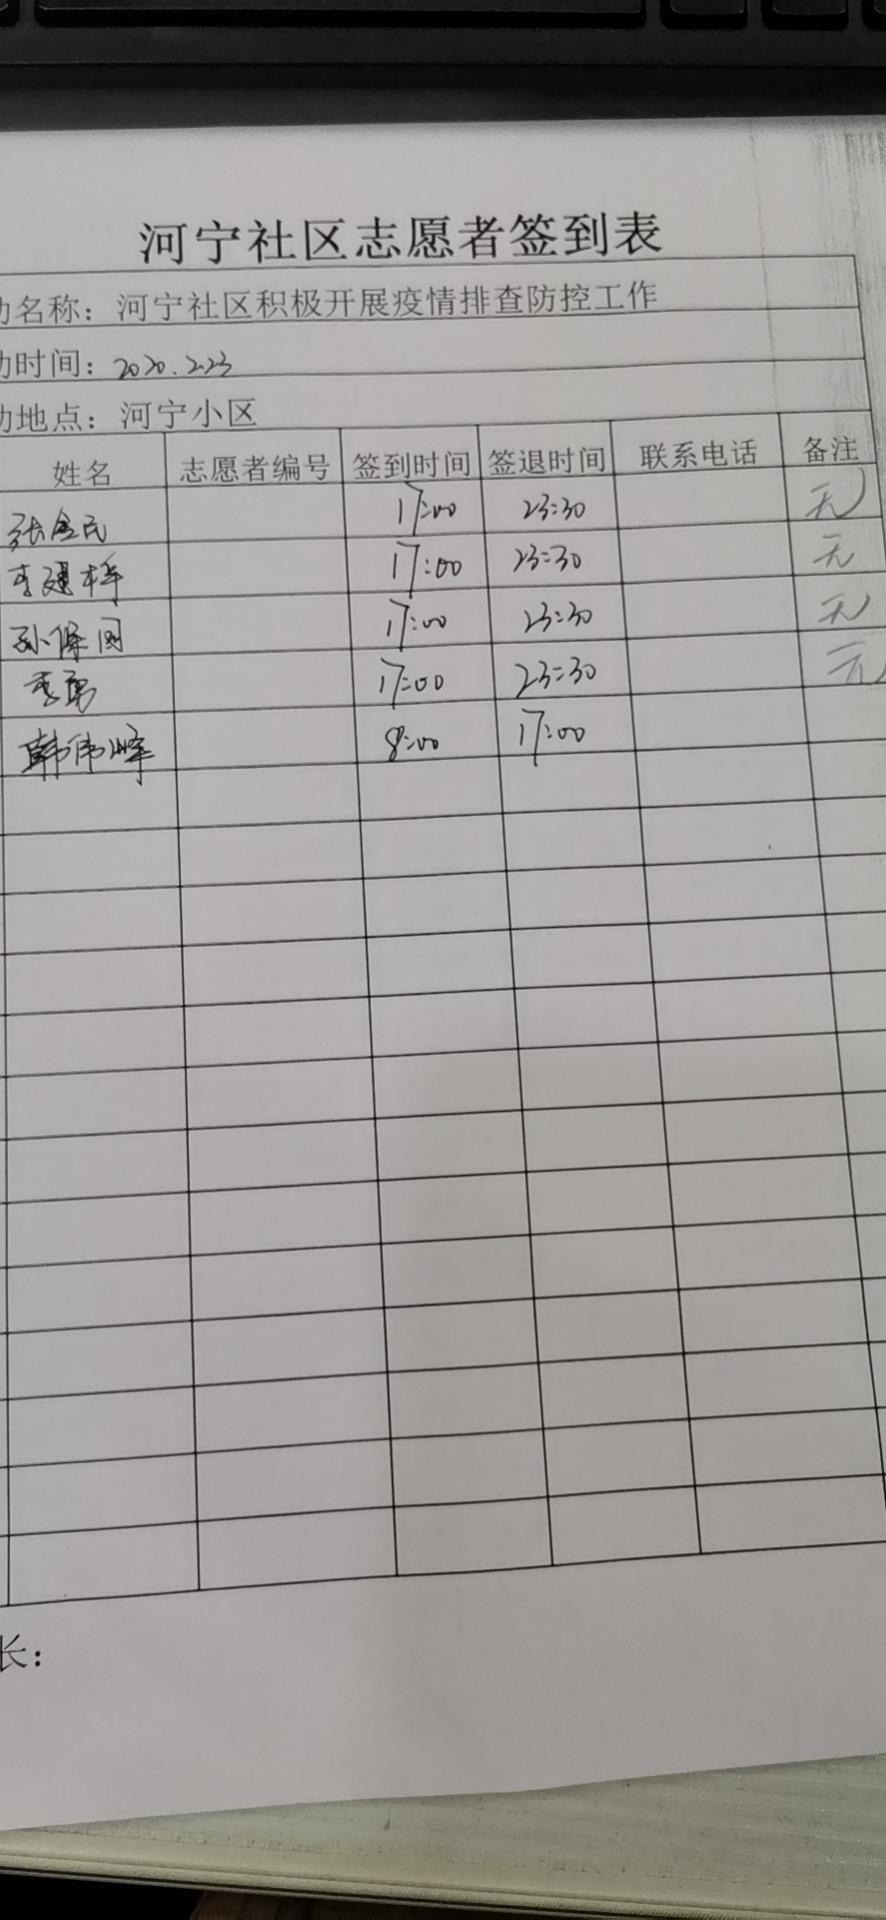 河宁社区志愿者签到表
动名称：河宁社区积极开展疫情排查防控工作
动时间：2020.2.23
动地点：河宁小区
姓名 志愿者编号 签到时间 签退时间 联系电话 备注
张金民 17:00 23:30 无
李建梓 17:00 23:30 无
孙保国 17:00 23:30 无
李勇 17:00 23:30 无
韩伟峰 8:00 17:00
长：